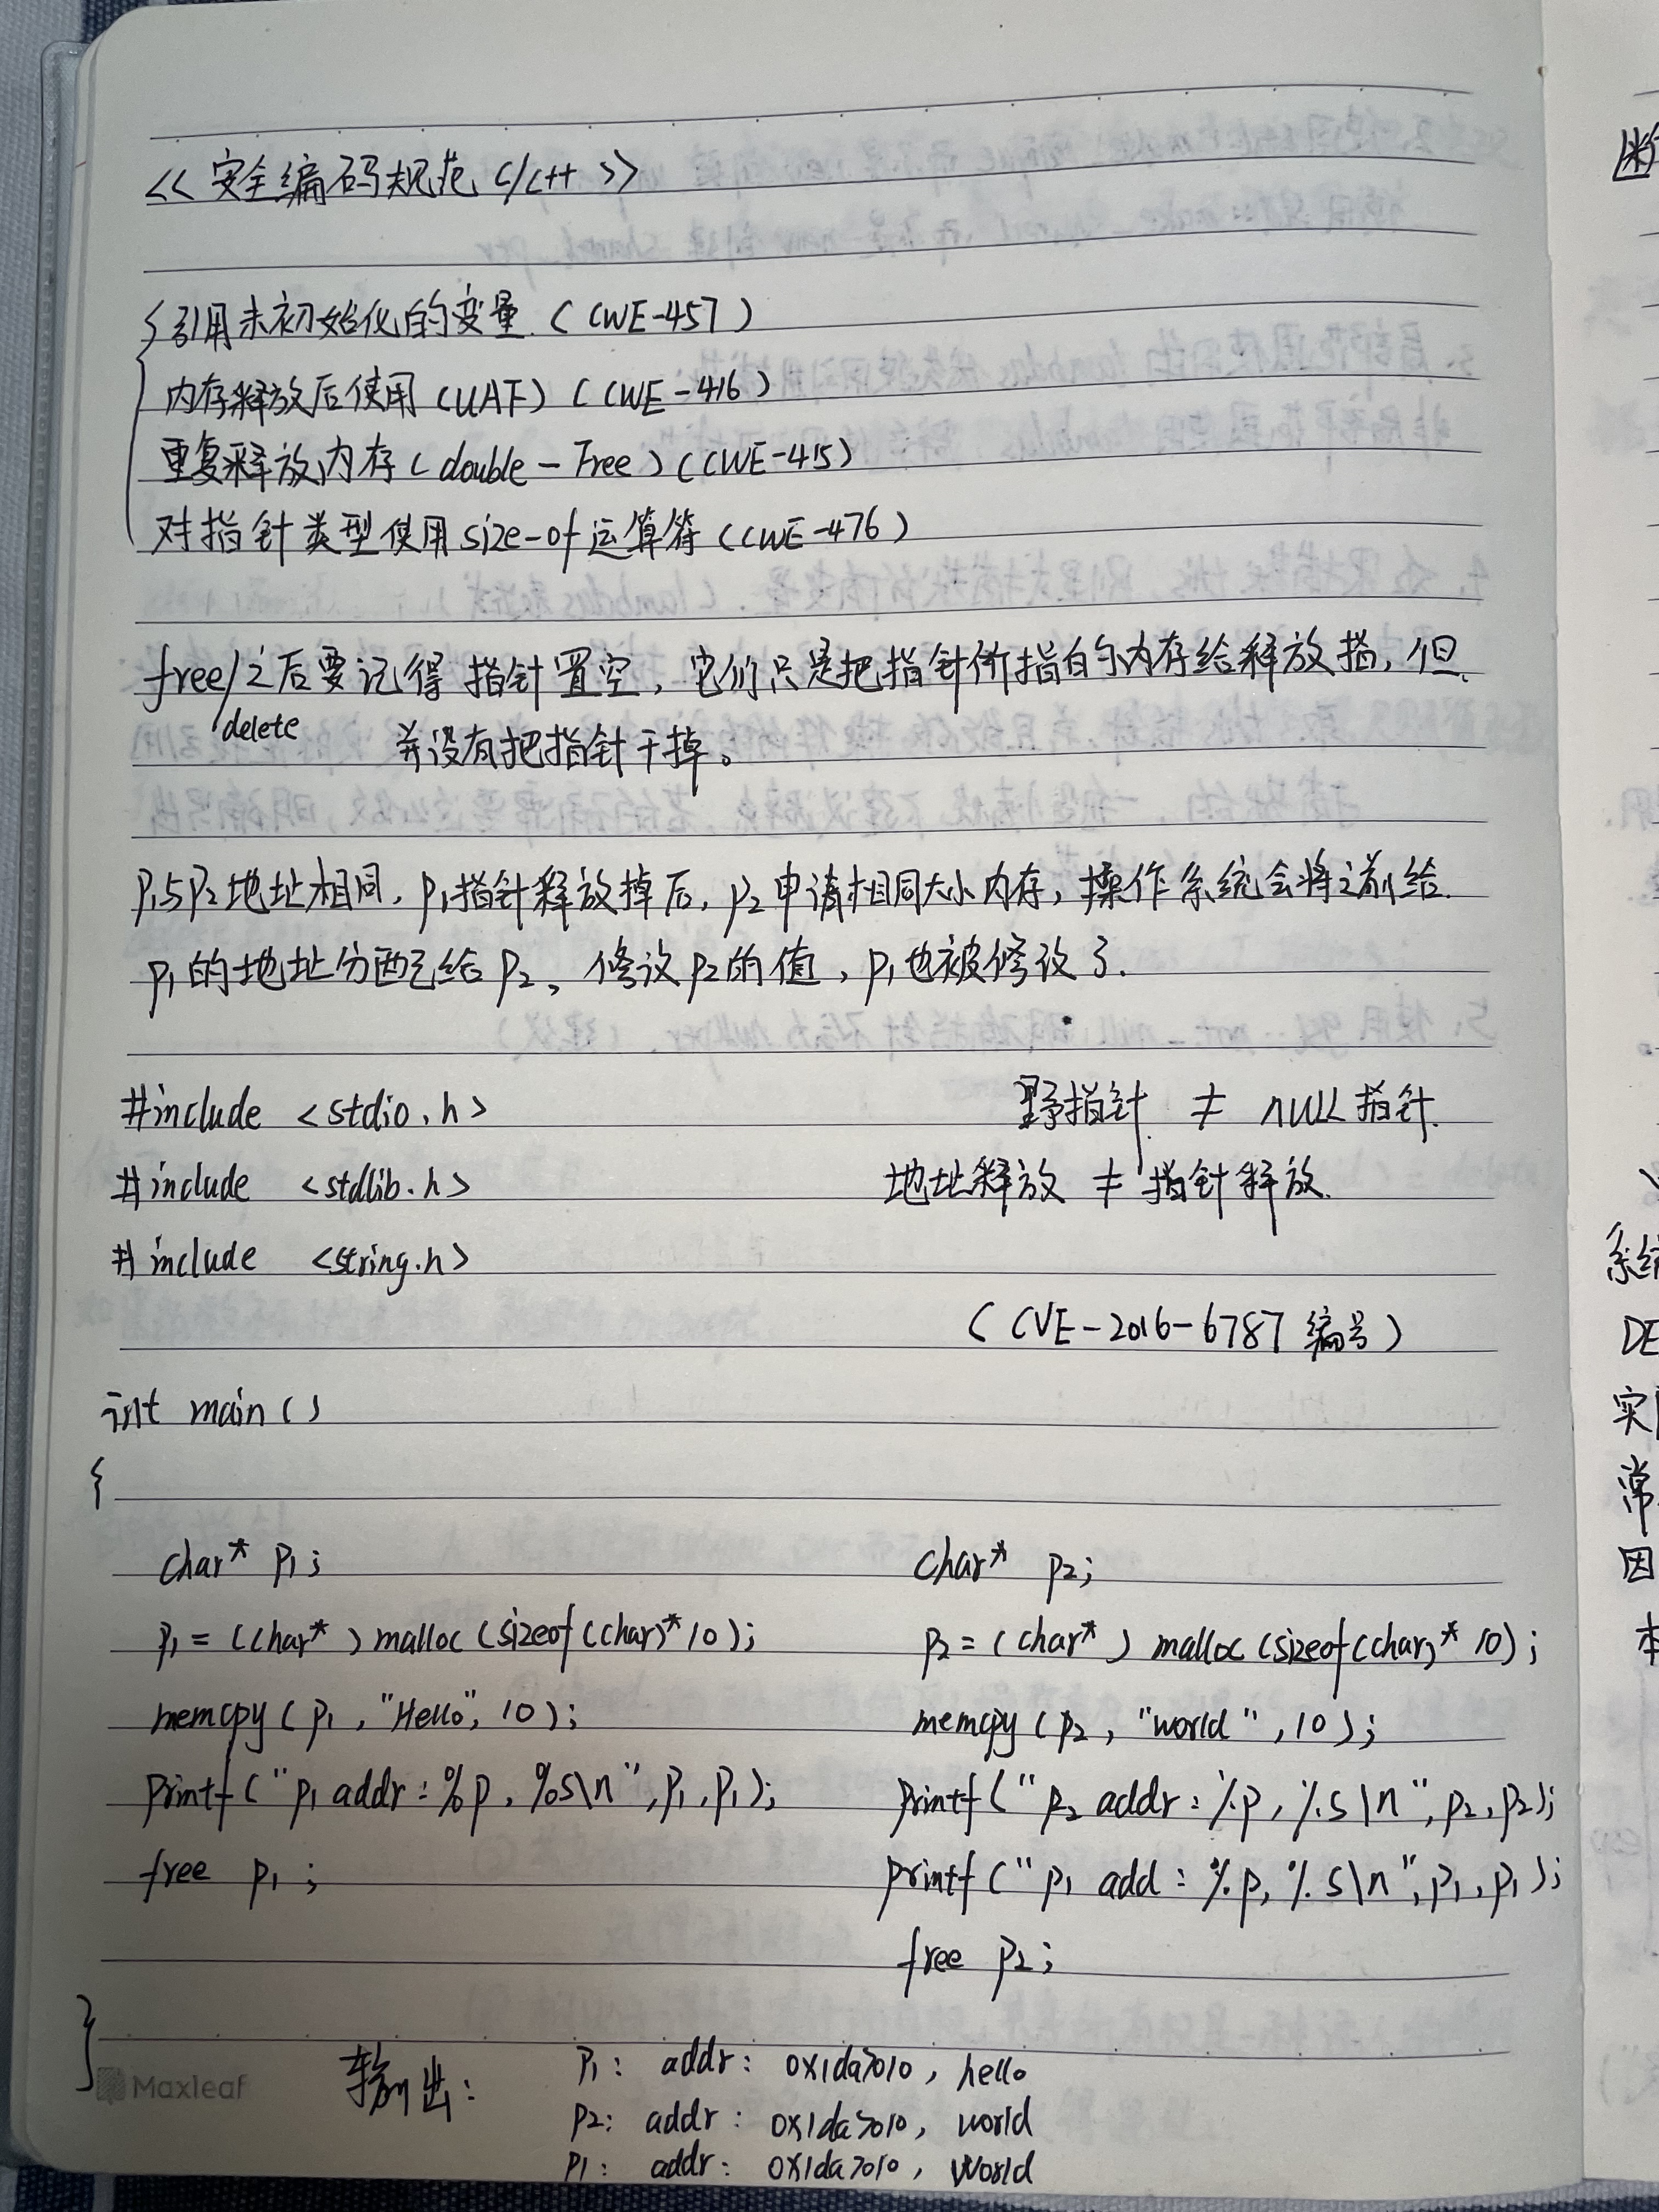 << 安全编码规范 C/C++ >>
引用未初始化的变量.(CWE-457)
内存释放后使用(UAF)(CWE-416)
重复释放内存(double-Free)(CWE-415)
对指针类型使用size-of运算符(CWE-476)
free/之后要记得指针置空,它们只是把指针所指的内存给释放掉,但
delete
并没有把指针干掉。
P1与P2地址相同,P1指针释放掉后,P2申请相同大小内存,操作系统会将之前给
P1的地址分配给P2。修改P2的值,P1也被修改了.
#include <stdio.h>
野指针 ≠ NULL指针.
#include <stdlib.h>
地址释放 ≠ 指针释放.
#include <string.h>
(CVE-2016-6787 编号)
int main()
{
char* P1;
char* P2;
P1=(char*)malloc(sizeof(char)*10);
P2=(char*)malloc(sizeof(char)*10);
memcpy(P1,"Hello",10);
memcpy(P2,"world",10);
printf("P1 addr:%p,%s\n",P1,P1);
printf("P2 addr:%p,%s\n",P2,P2);
free P1;
printf("P1 add:%p,%s\n",P1,P1);
free P2;
}
Maxleaf
输出:
P1: addr: 0x1da7010, hello
P2: addr: 0x1da7010, world
P1: addr: 0x1da7010, World
系统
DE
实
常
因